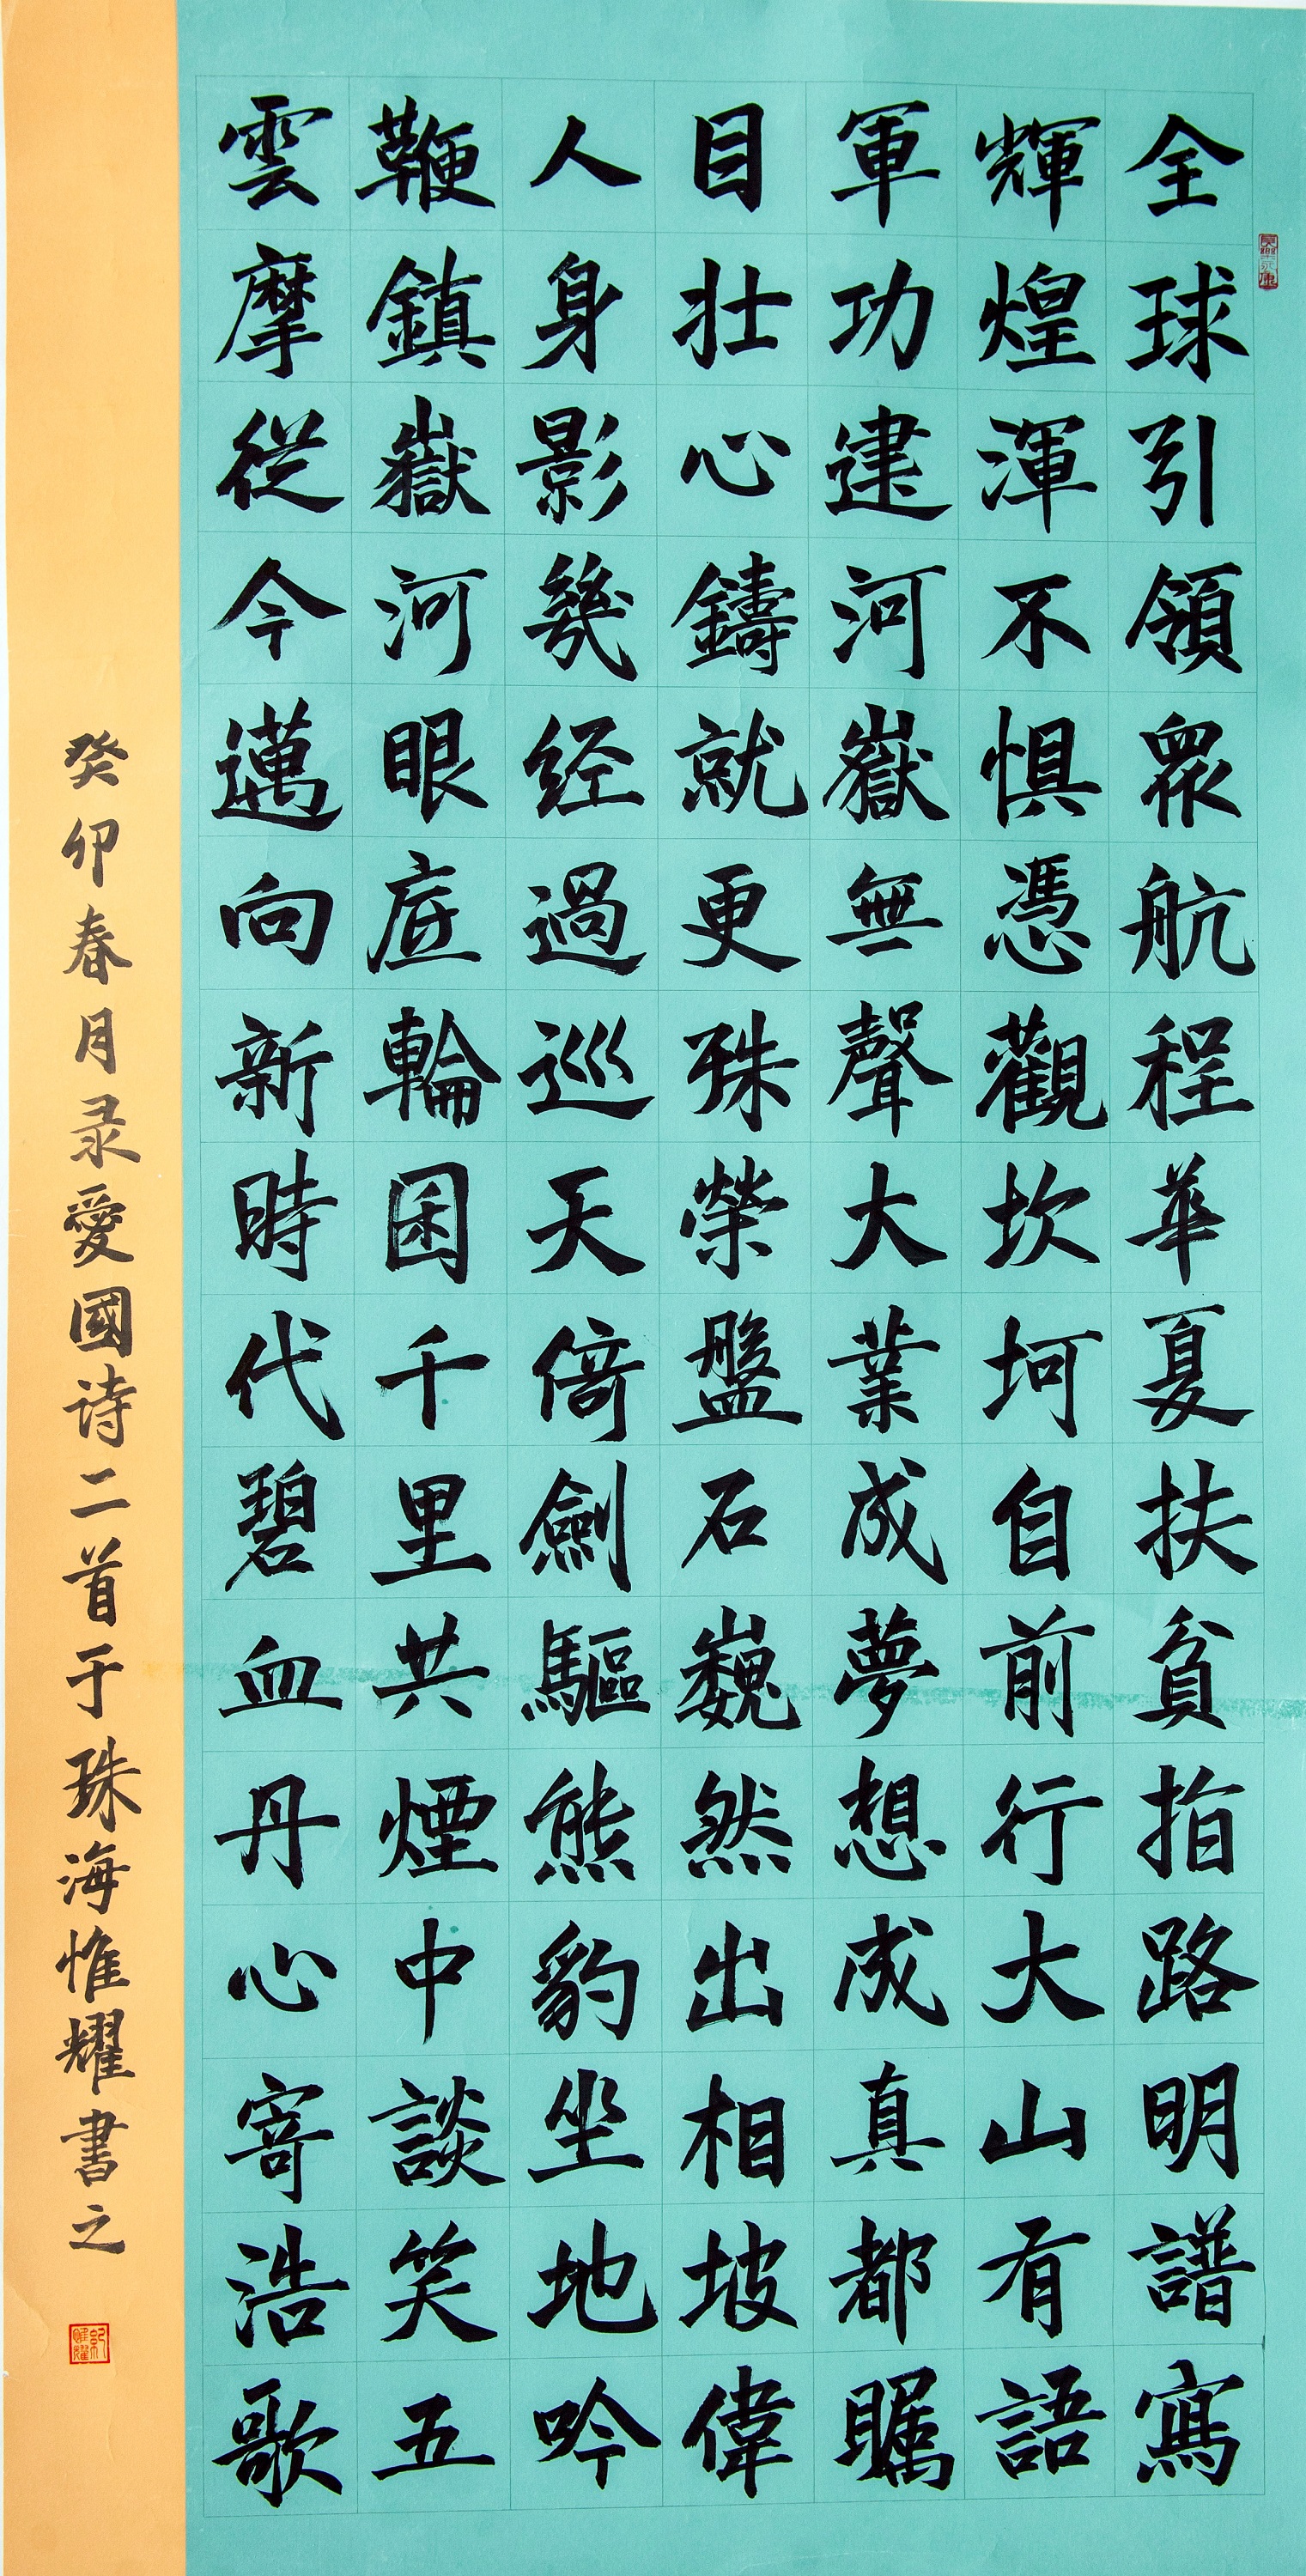 全球引領衆航程華夏扶貧拍路明譜寫
輝煌渾不惧憑觀坎坷自前行大山有語
軍功建河嶽無聲大業成夢想成真都矚
目壯心鑄就更殊榮盤石巍然出相坡偉
人身影幾经過巡天倚劍驅熊豹坐地吟
鞭鎮嶽河眼底輪困千里共煙中談笑五
雲摩從今邁向新時代碧血丹心寄浩歌
癸卯春月录愛國诗二首于珠海惟耀書之